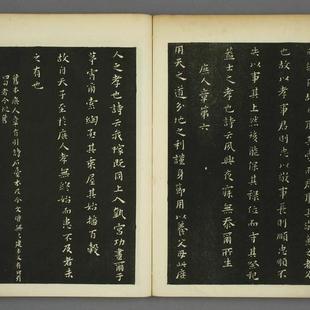 也故以孝事君則忠以敬事長則順忠順不
失以事其上然後能保其祿位而守其祭祀
蓋士之孝也詩云夙興夜寐無忝爾所生
庶人章第六
用天之道分地之利謹身節用以養父母此庶
人之孝也詩云我稼既同上入執宮功晝爾于
茅宵爾索綯亟其乘屋其始播百穀
故自天子至於庶人孝無終始而患不及者未
之有也